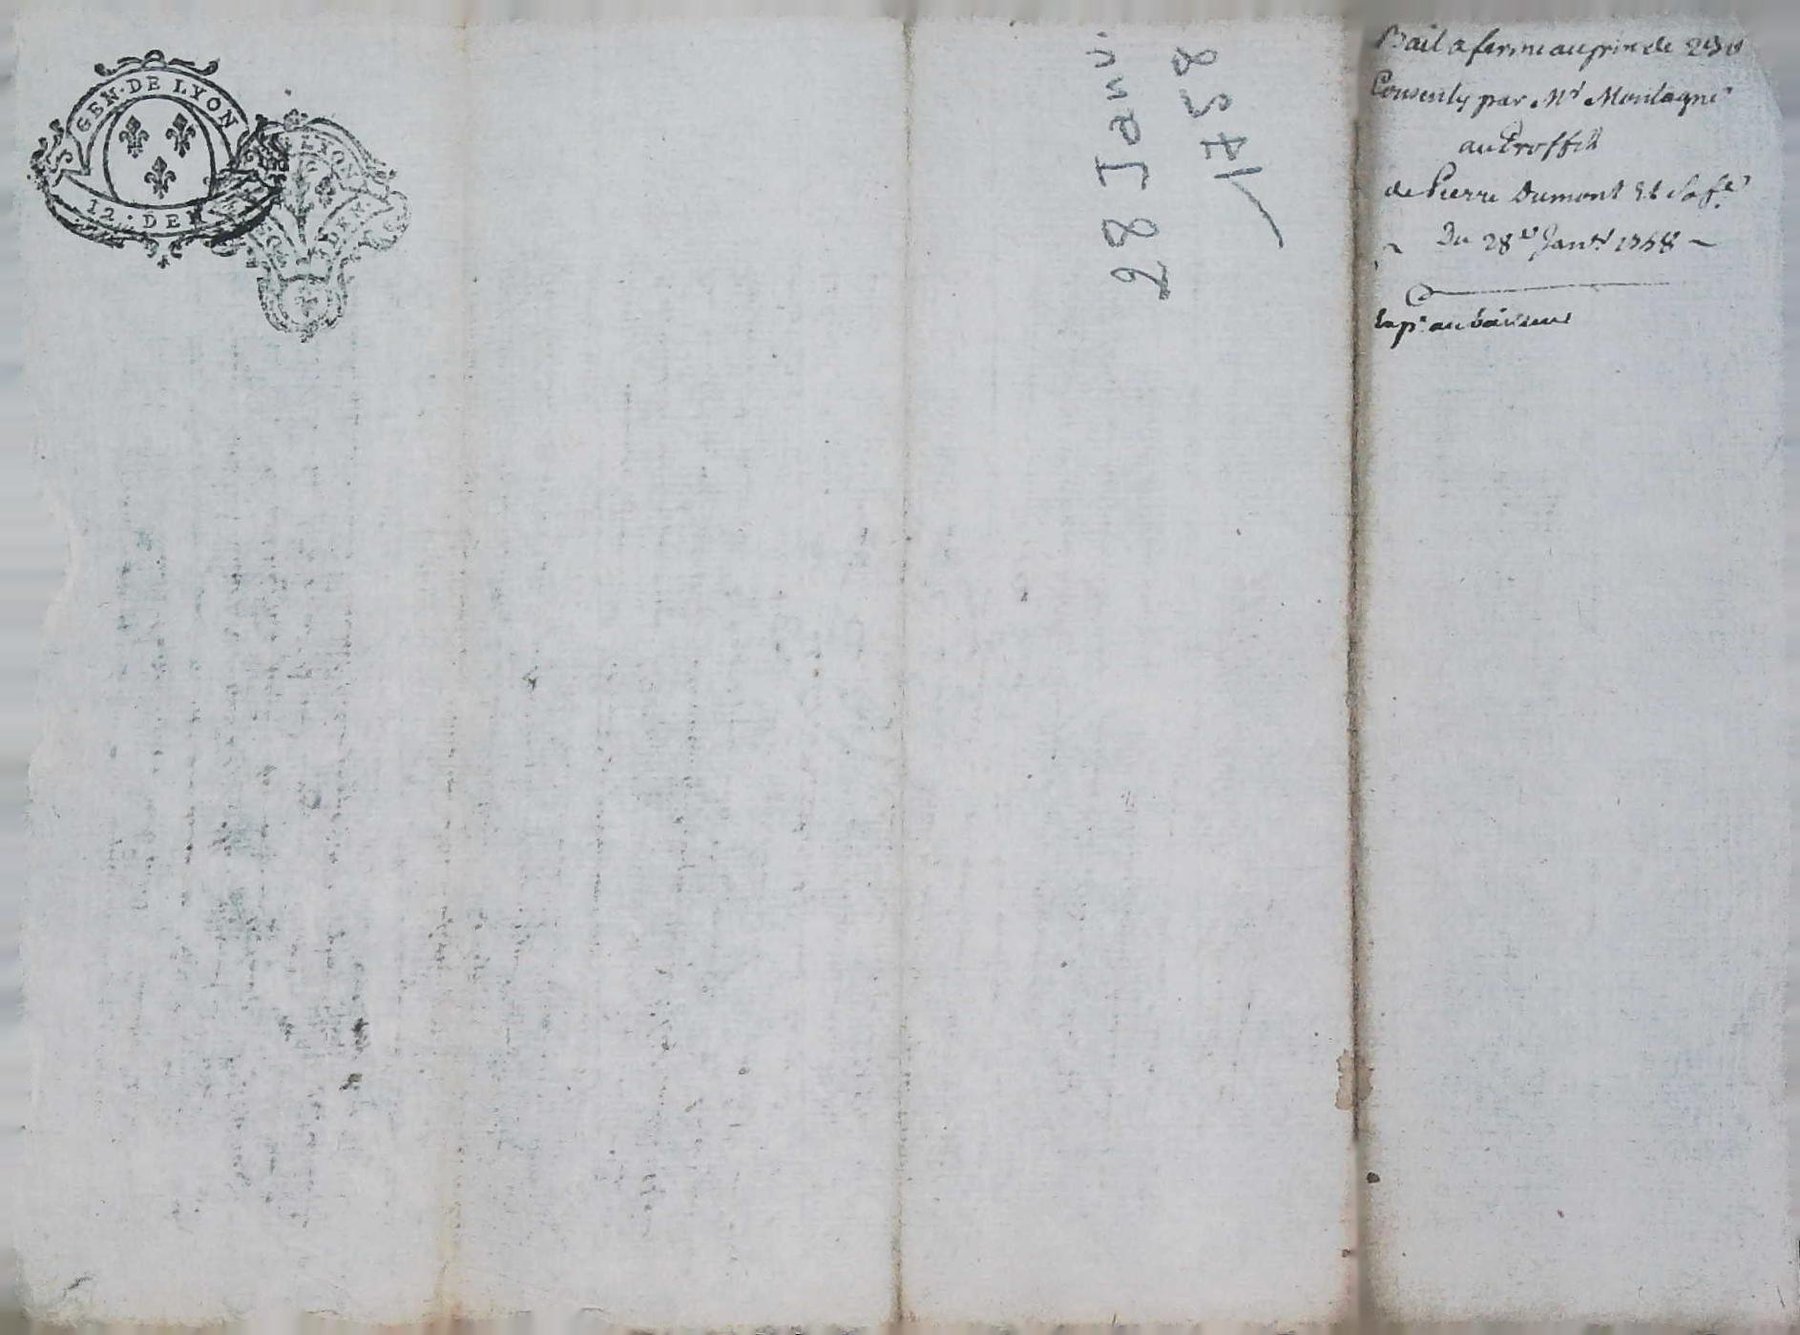 GEN·DE LYON
12·DEN
LYON
DEN
28 Janv.
1758
Bail a ferme au prix de
Consenty par Mr Montagne
au Proffit
de Pierre Dumont Et Sa fe
Du 28e Janer 1758
Exp. au bailleur